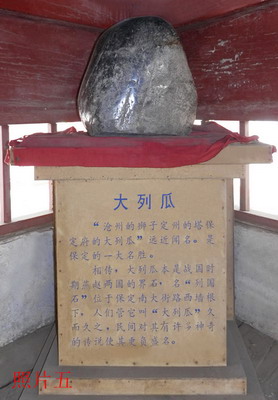 大列瓜
“沧州的狮子定州的塔保
定府的大列瓜”远近闻名。是
保定的一大名胜。
相传,大列瓜本是战国时
期燕赵两国的界石,名“列国
石”位于保定南大街路西墙根
下,人们管它叫“大列瓜”久
而久之,民间对其有许多神奇
的传说使其更负盛名。
照片五